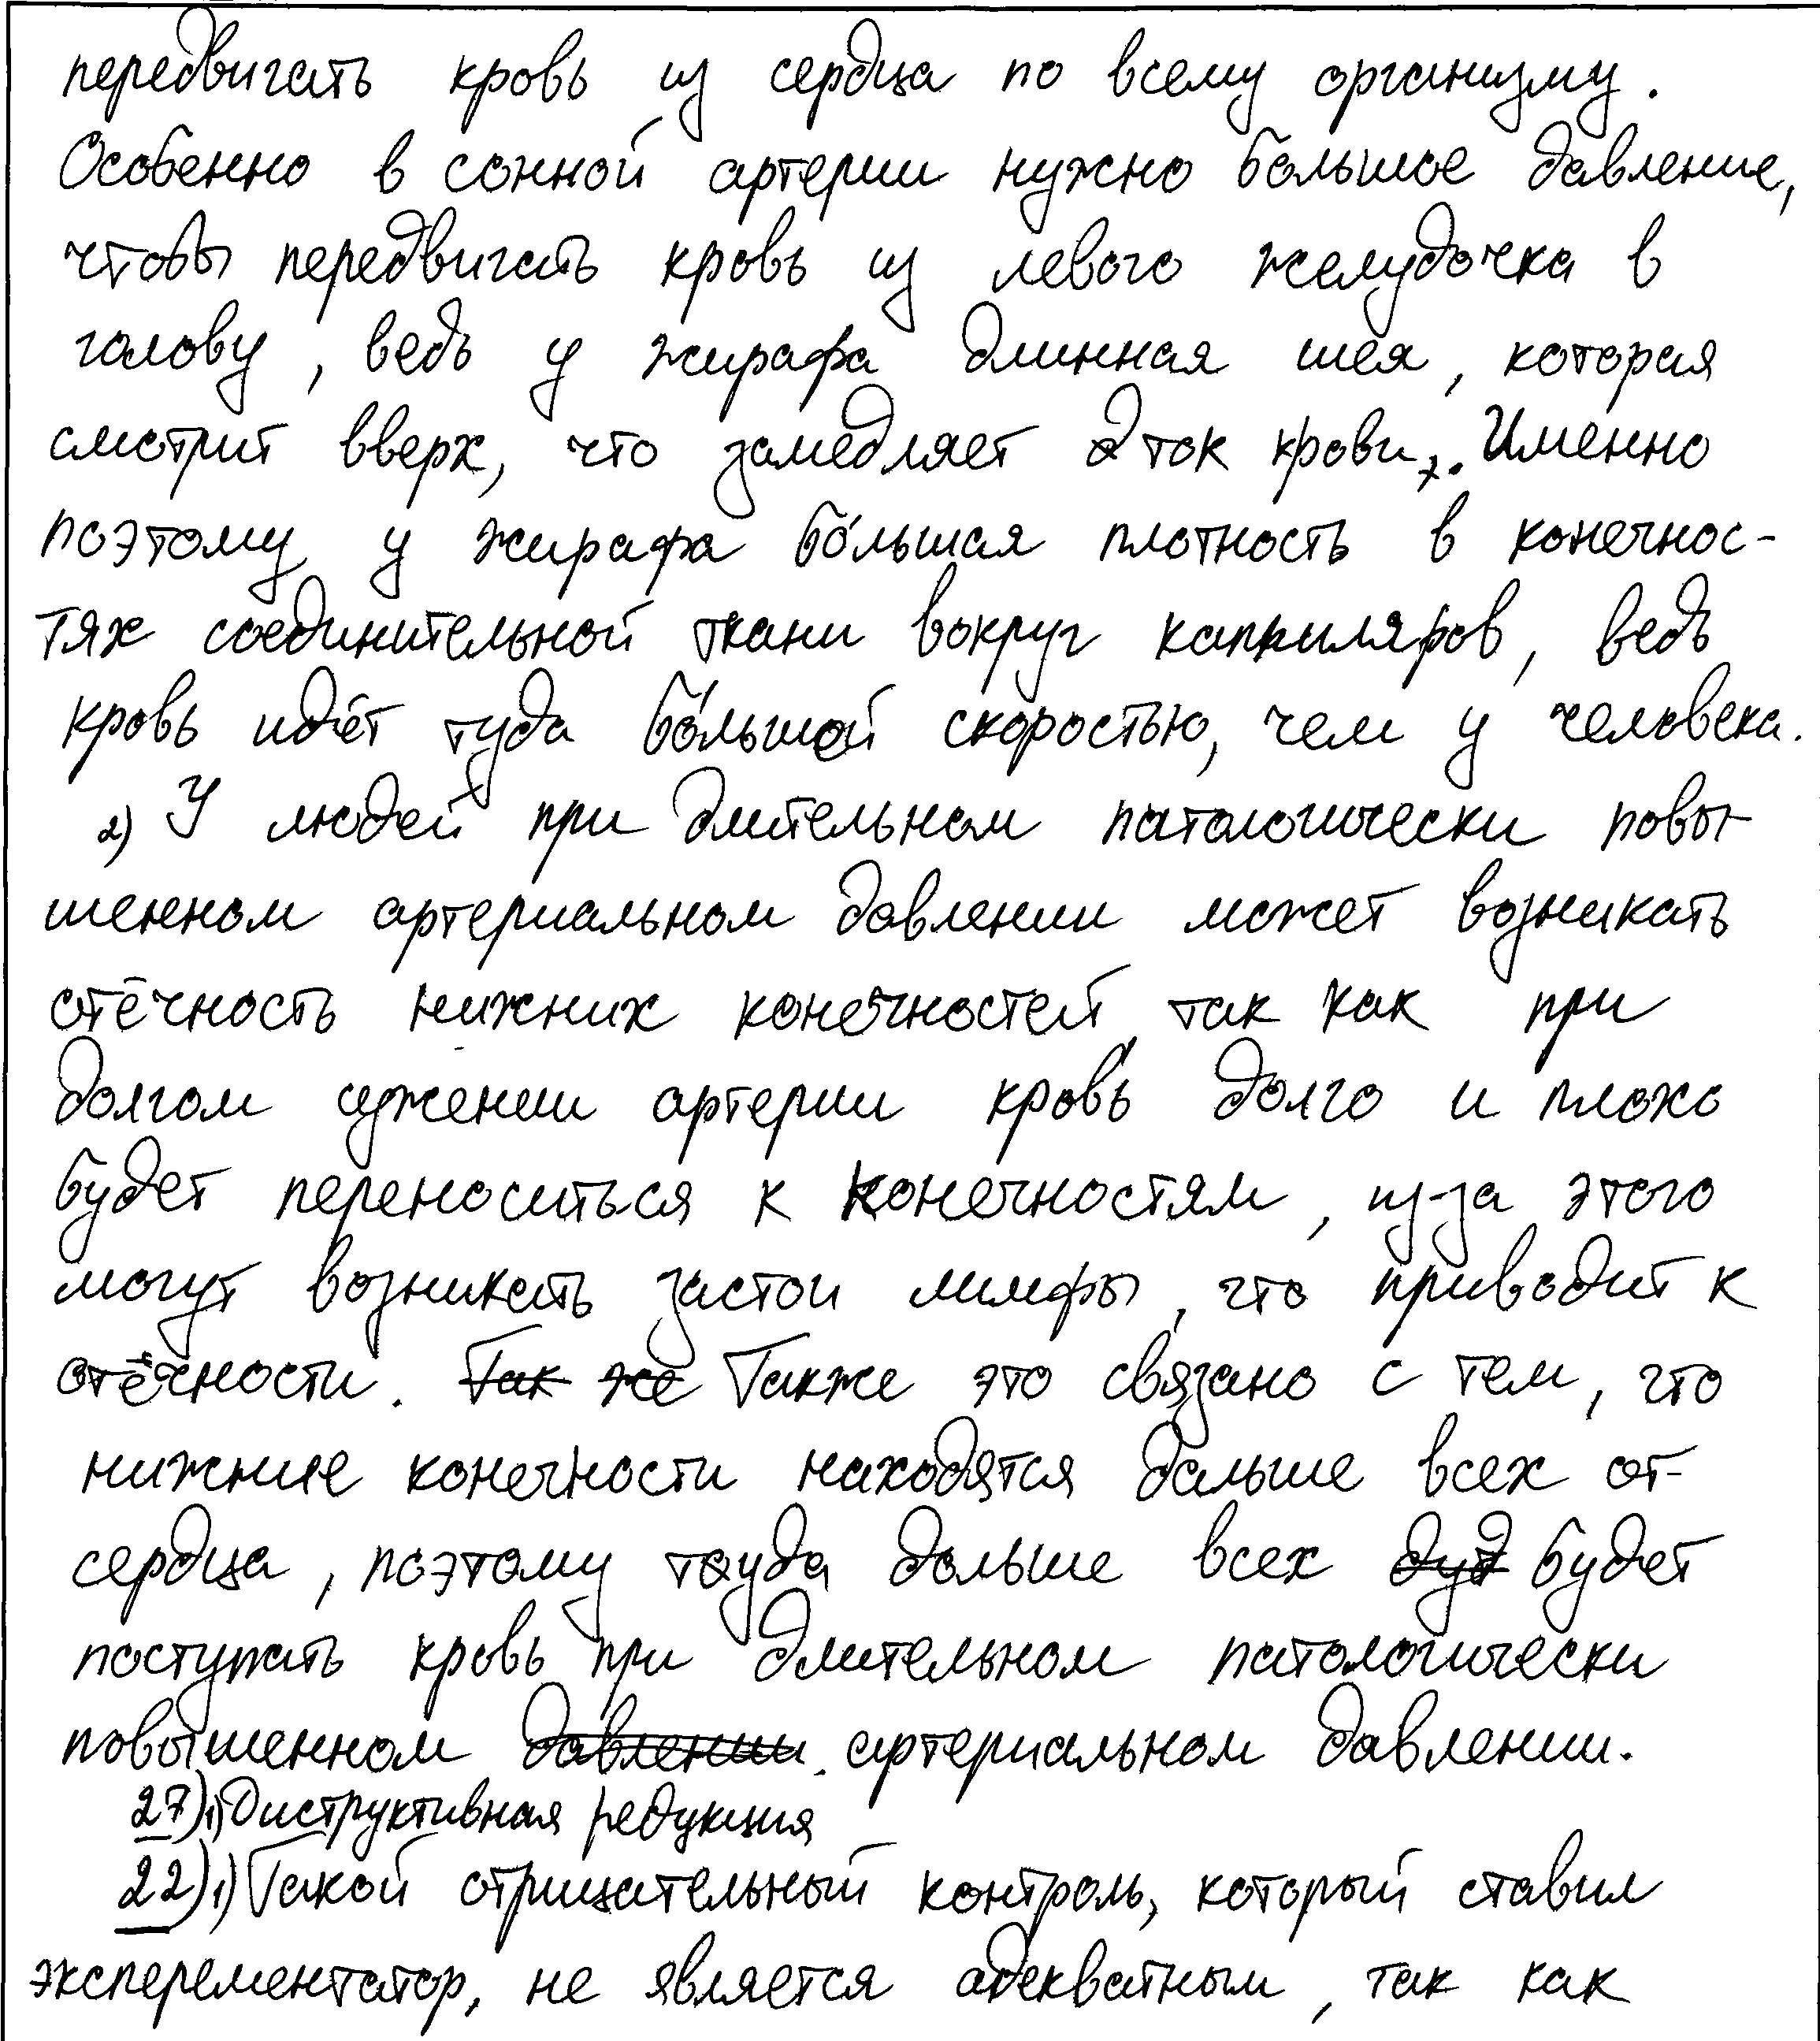 передвигать кровь из сердца по всему организму.
Особенно в сонной артерии нужно большое давление,
чтобы передвигать кровь из левого желудочка в
голову, ведь у жирафа длинная шея, которая
смотрит вверх, что замедляет ток крови. Именно
поэтому у жирафа бо́льшая плотность в конечнос-
тях соединительной ткани вокруг каппиляров, ведь
кровь идёт туда бо́льшой скоростью, чем у человека.
2) У людей при длительном патологически повы-
шенном артериальном давлении может возникать
отёчность нижних конечностей, так как при
долгом сужении артерии кровь долго и плохо
будет переноситься к конечностям, из-за этого
могут возникать застои лимфы, что приводит к
отёчности. Так же Также это связано с тем, что
нижние конечности находятся дальше всех от-
сердца, поэтому туда дольше всех будет
поступать кровь при длительном патологически
повышенном давлении артериальном давлении.
27)1) Диструктивная редукция
22)1) Такой отрицательный контроль, который ставил
эксперементатор, не является адекватным, так как